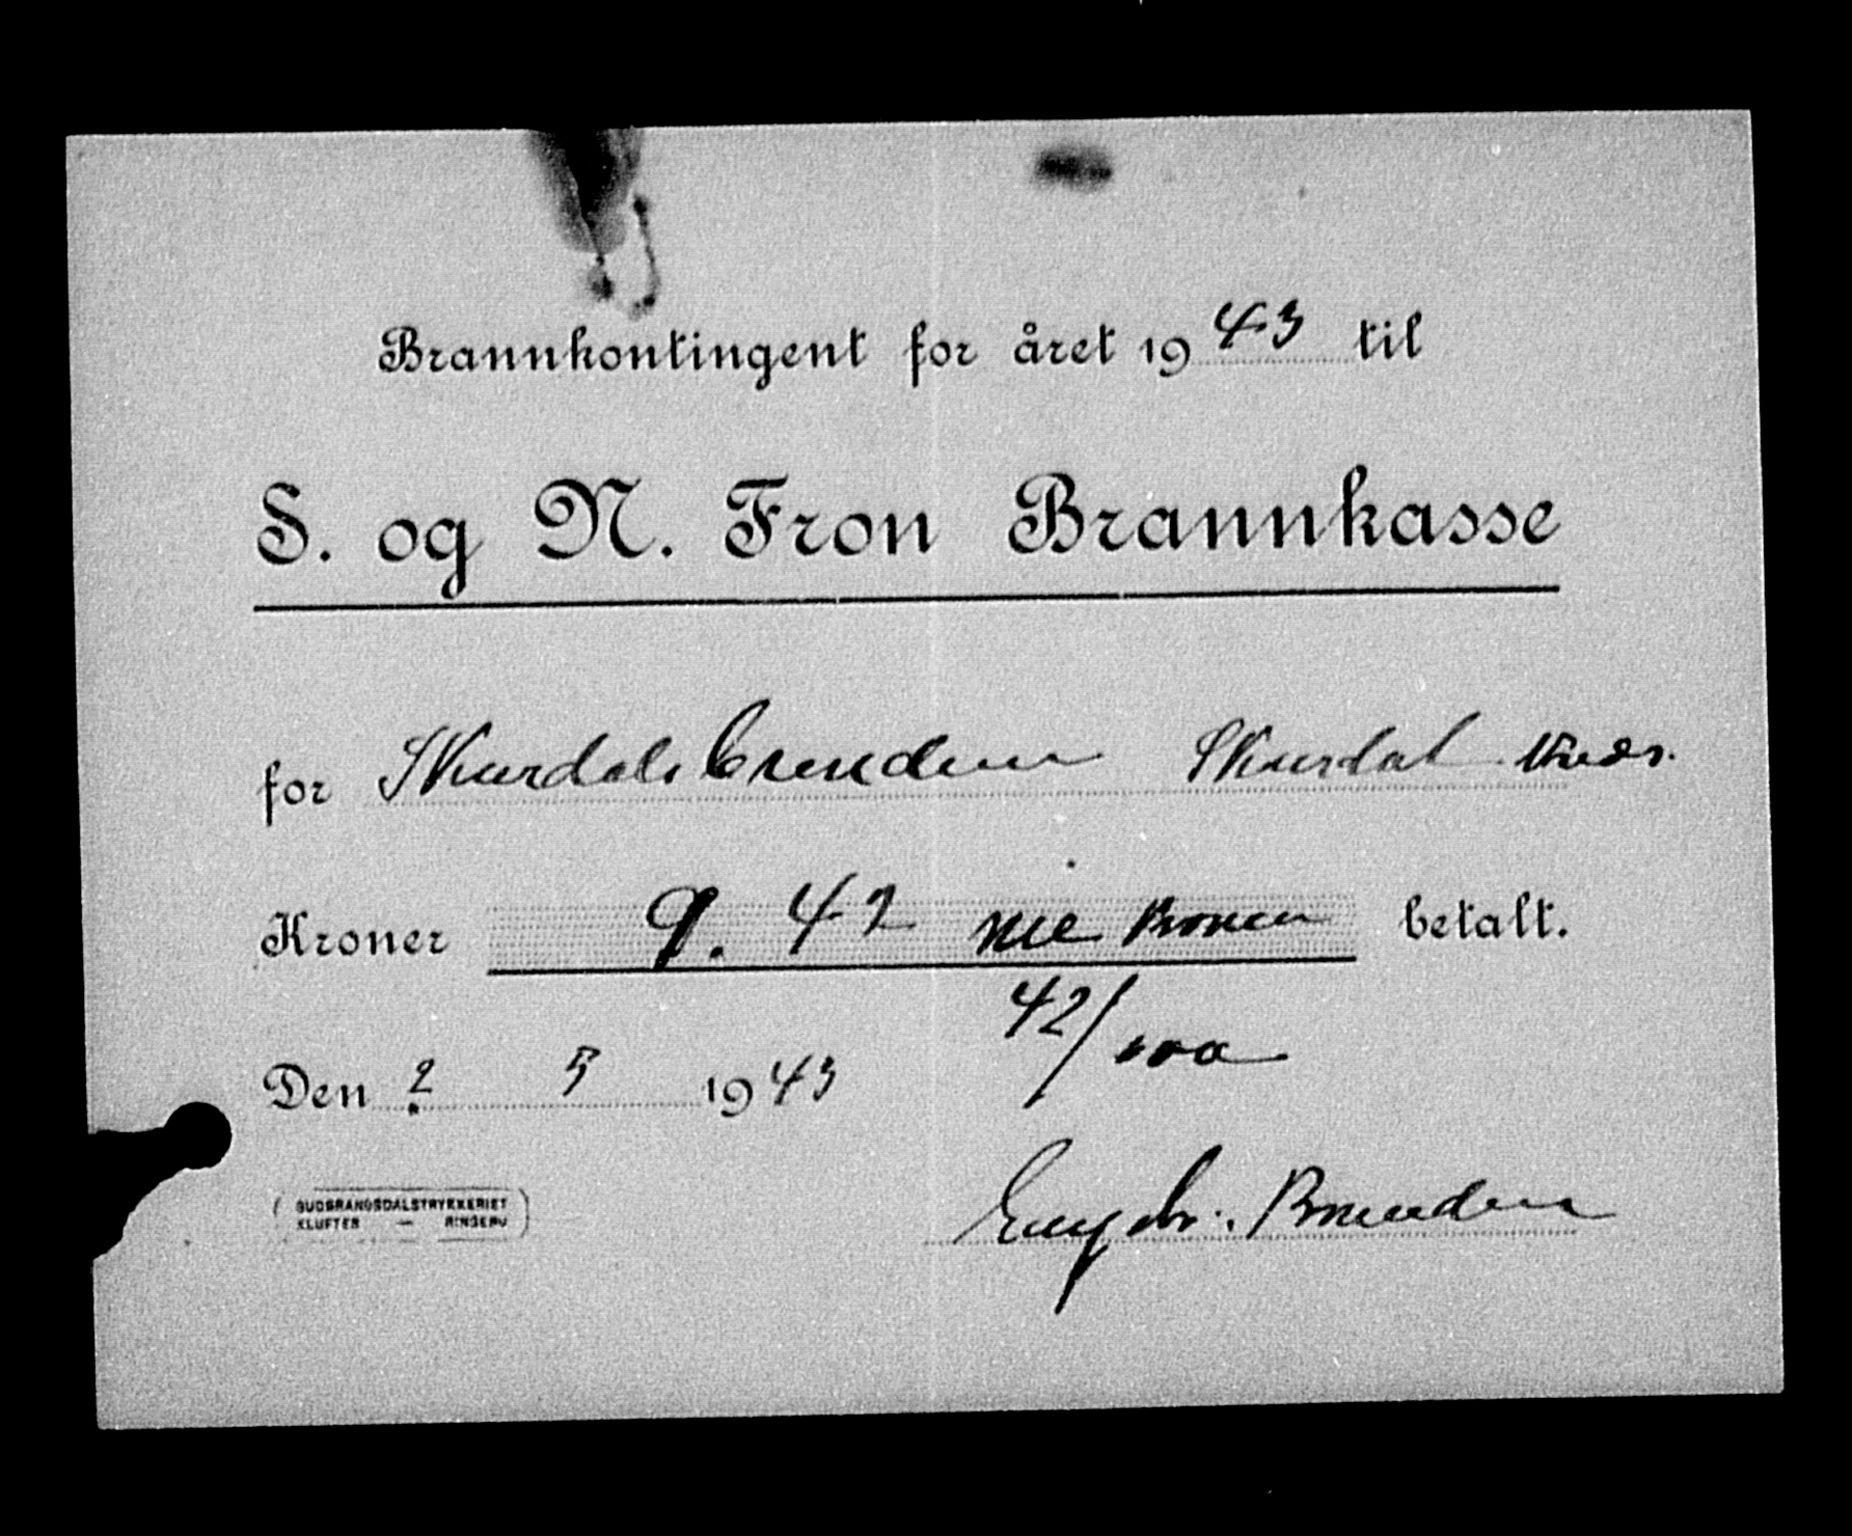 Brannkontingent for året 1943 til
S. og N. Fron Brannkasse
for Skurdalsbrenden Skurdal
Kroner 9.42 nie kroner betalt.
42/100
Den 2 5 1943
Engebr. Brenden
GUDBRANDSDALSTRYKKERIET
KLUFTEN — RINGEBU